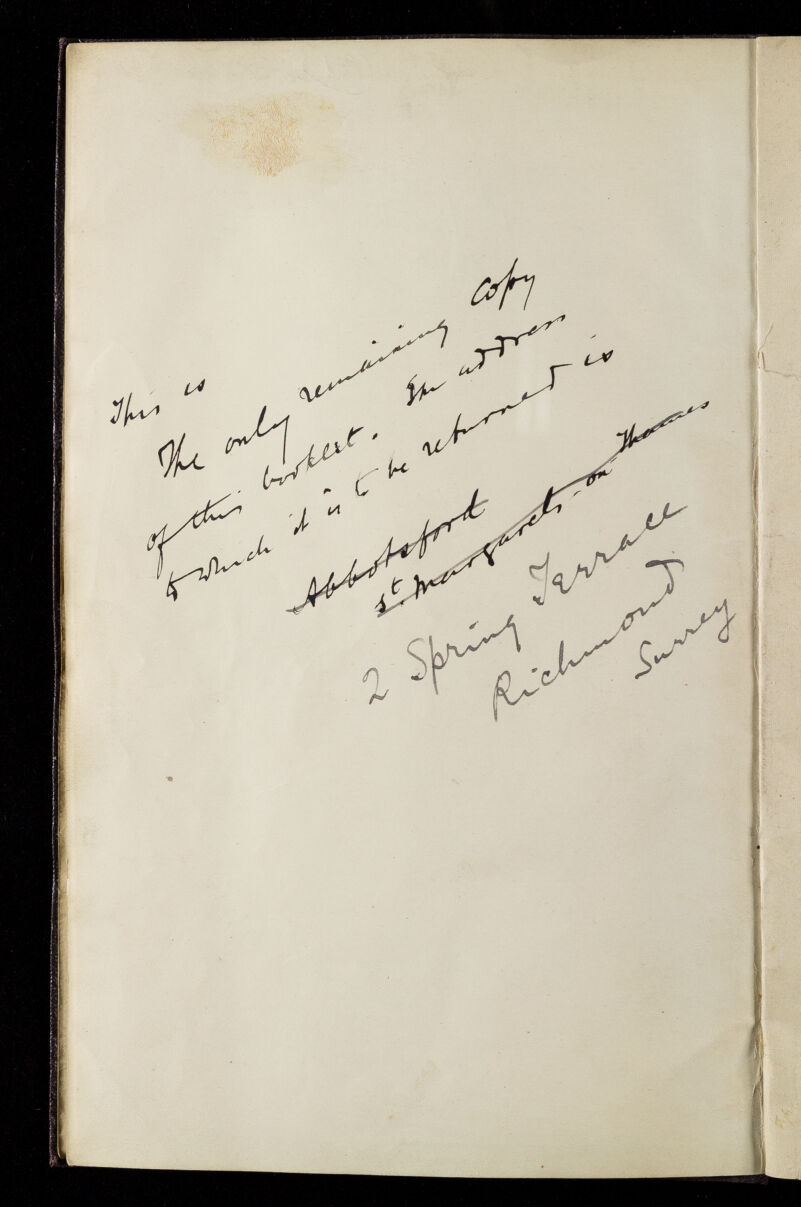 This is
The only remaining copy
of this booklet. The address
to which it is to be returned is
Abbotsford
St. Margarets-on Thames
2 Spring Terrace
Richmond
Surrey